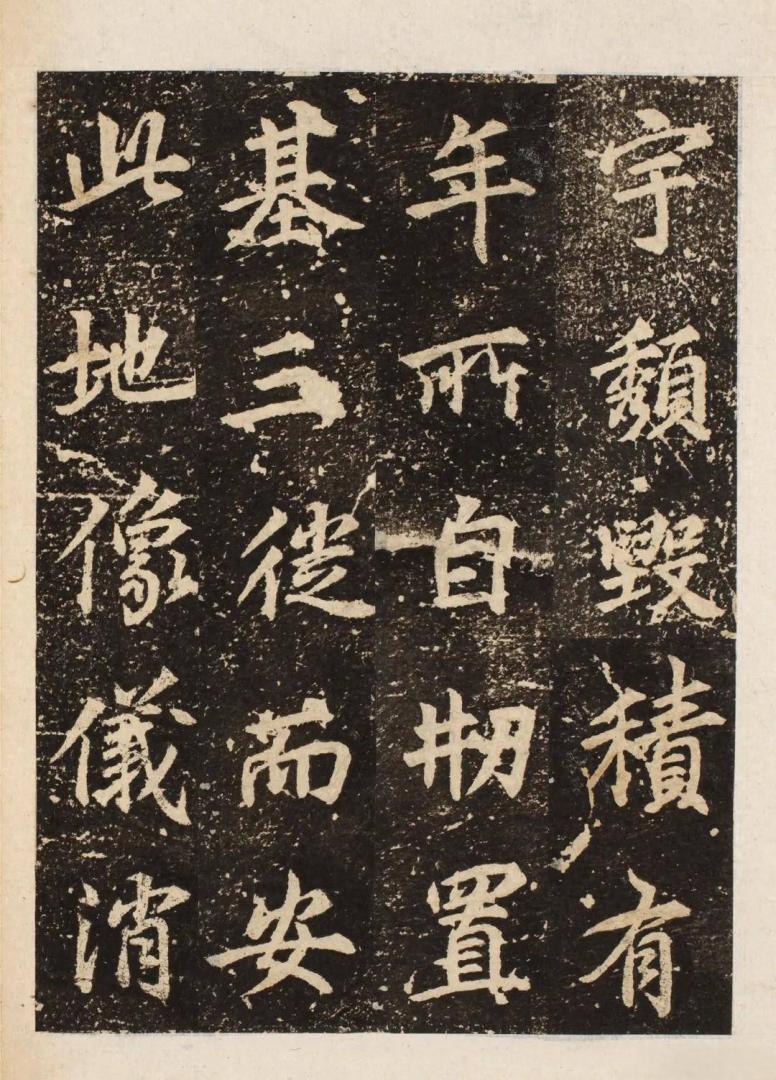 宇頹毀積有
年所自刱置
基三徙而安
此地像儀消